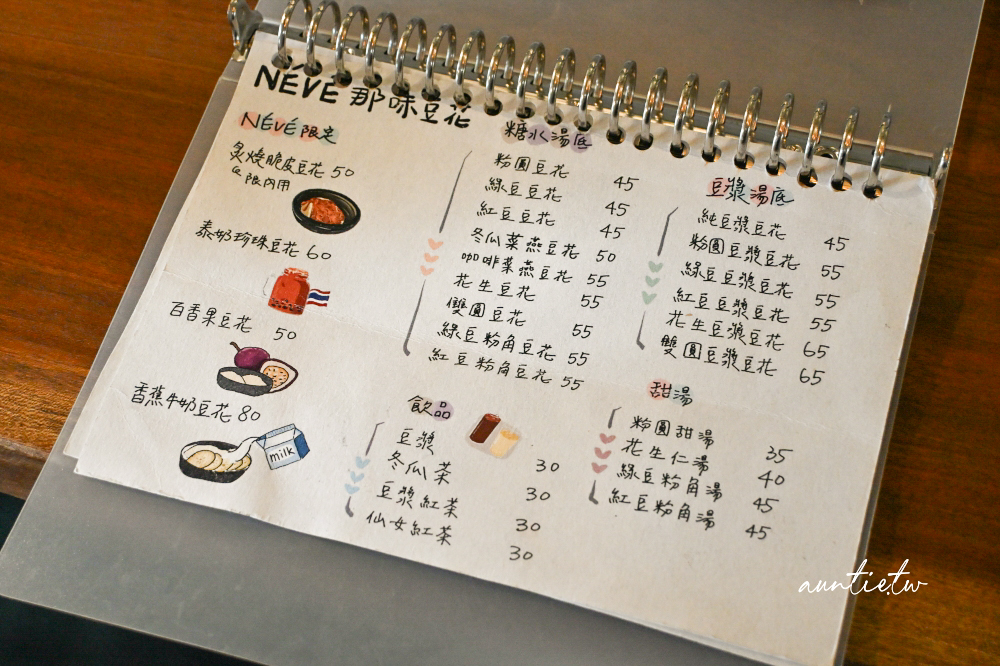 NÉVÉ 那味豆花
NÉVÉ 限定
炙燒脆皮豆花 50
限內用
泰奶珍珠豆花 60
百香果豆花 50
香蕉牛奶豆花 80
milk
糖水湯底
粉圓豆花 45
綠豆豆花 45
紅豆豆花 45
冬瓜菜燕豆花 50
咖啡菜燕豆花 55
花生豆花 55
雙圓豆花 55
綠豆粉角豆花 55
紅豆粉角豆花 55
豆漿湯底
純豆漿豆花 45
粉圓豆漿豆花 55
綠豆豆漿豆花 55
紅豆豆漿豆花 55
花生豆漿豆花 65
雙圓豆漿豆花 65
飲品
豆漿 30
冬瓜茶 30
豆漿紅茶 30
仙女紅茶 30
甜湯
粉圓甜湯 35
花生仁湯 40
綠豆粉角湯 45
紅豆粉角湯 45
auntie.tw